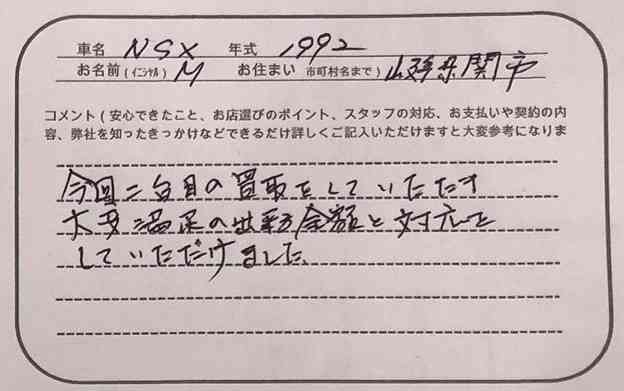 車名 NSX 年式 1992
お名前(イニシャル) M お住まい 市町村名まで) 岐阜県関市
コメント(安心できたこと、お店選びのポイント、スタッフの対応、お支払いや契約の内
容、弊社を知ったきっかけなどできるだけ詳しくご記入いただけますと大変参考になりま
今回二台目の買取をしていただき
大変満足の出来る金額と対応を
していただけました。